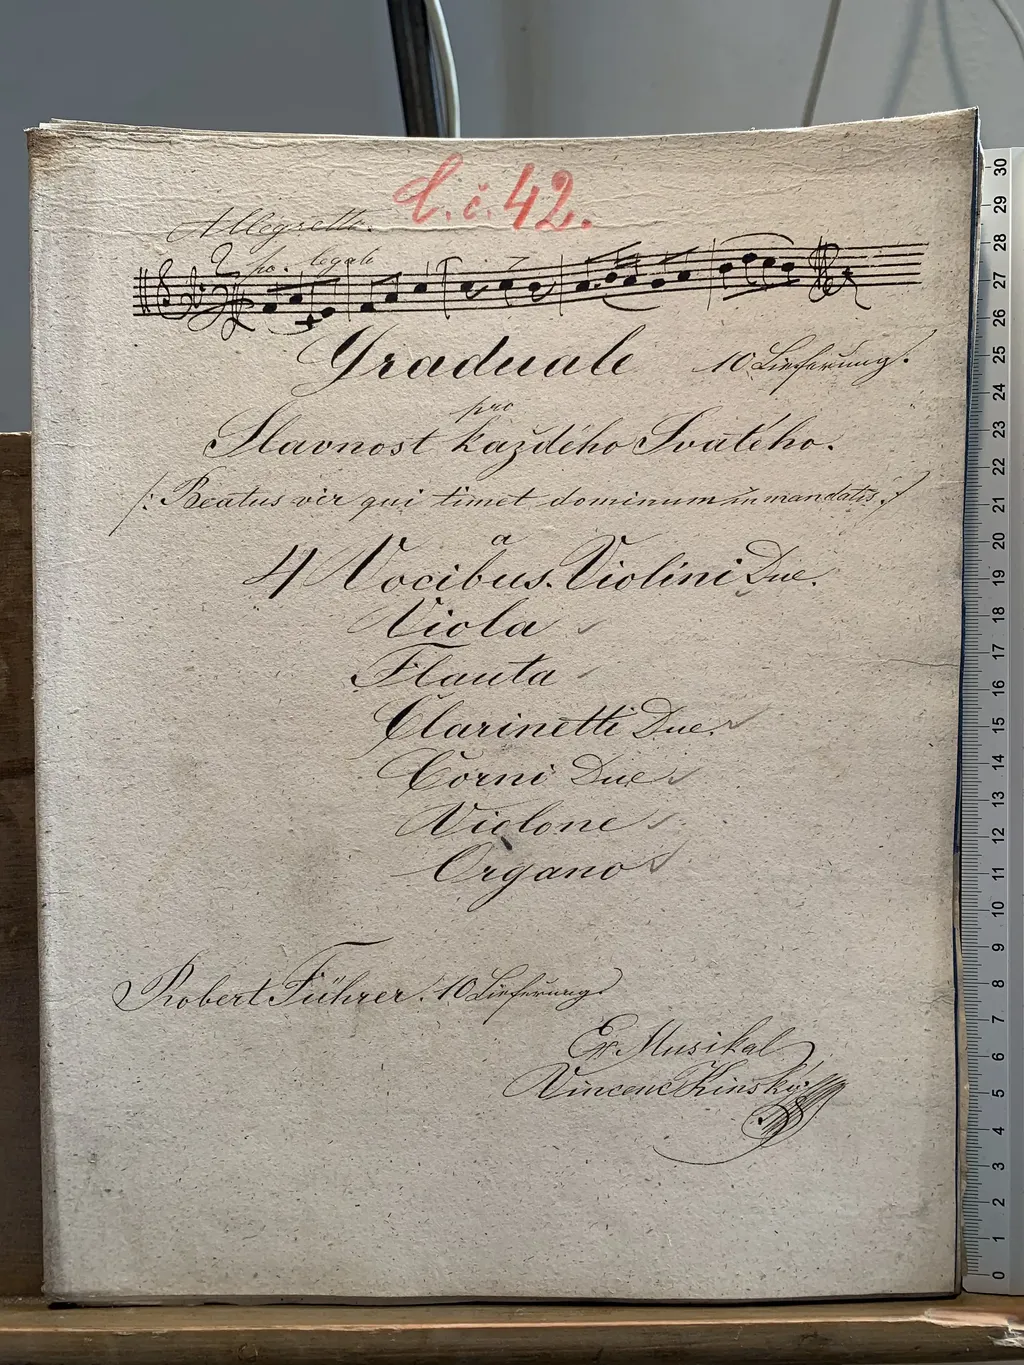 L. č. 42.
Allegretto.
po. legato
Graduale 10 Lieferung.
pro
Slavnost každého Svatého.
/: Beatus vir qui timet dominum in mandatis :/
a
4 Vocibus. Violini Due.
Viola
Flauta
Clarinetti Due.
Corni Due
Violone
Organo
Robert Führer. 10 Lieferung.
Ex Musikal
Vincenc Kinský
30
29
28
27
26
25
24
23
22
21
20
19
18
17
16
15
14
13
12
11
10
9
8
7
6
5
4
3
2
1
0